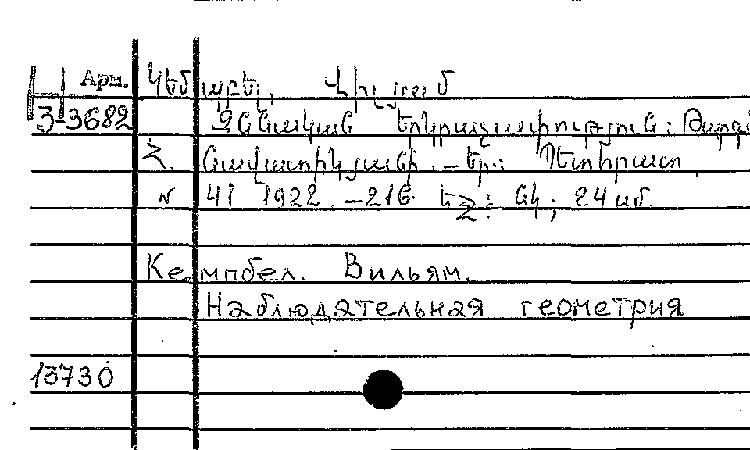 Арм. Կեմպբել, Վիլյամ
3-3682 Զննական երկրաչափություն: Թարգ
Հ. Նավասարդյանի. – Եր.: Պետհրատ,
41 1922. – 216 եջ: նկ; 24 սմ.
Кемпбел. Вильям.
Наблюдательная геометрия
13730